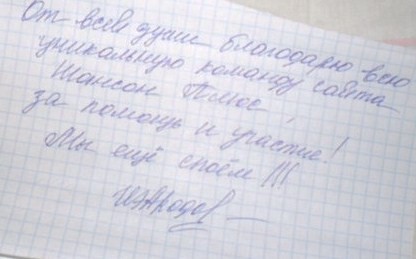 От всей души благодарю всю
уникальную команду сайта
Шансон Плюс,
за помощь и участие!
Мы ещё споём!!!